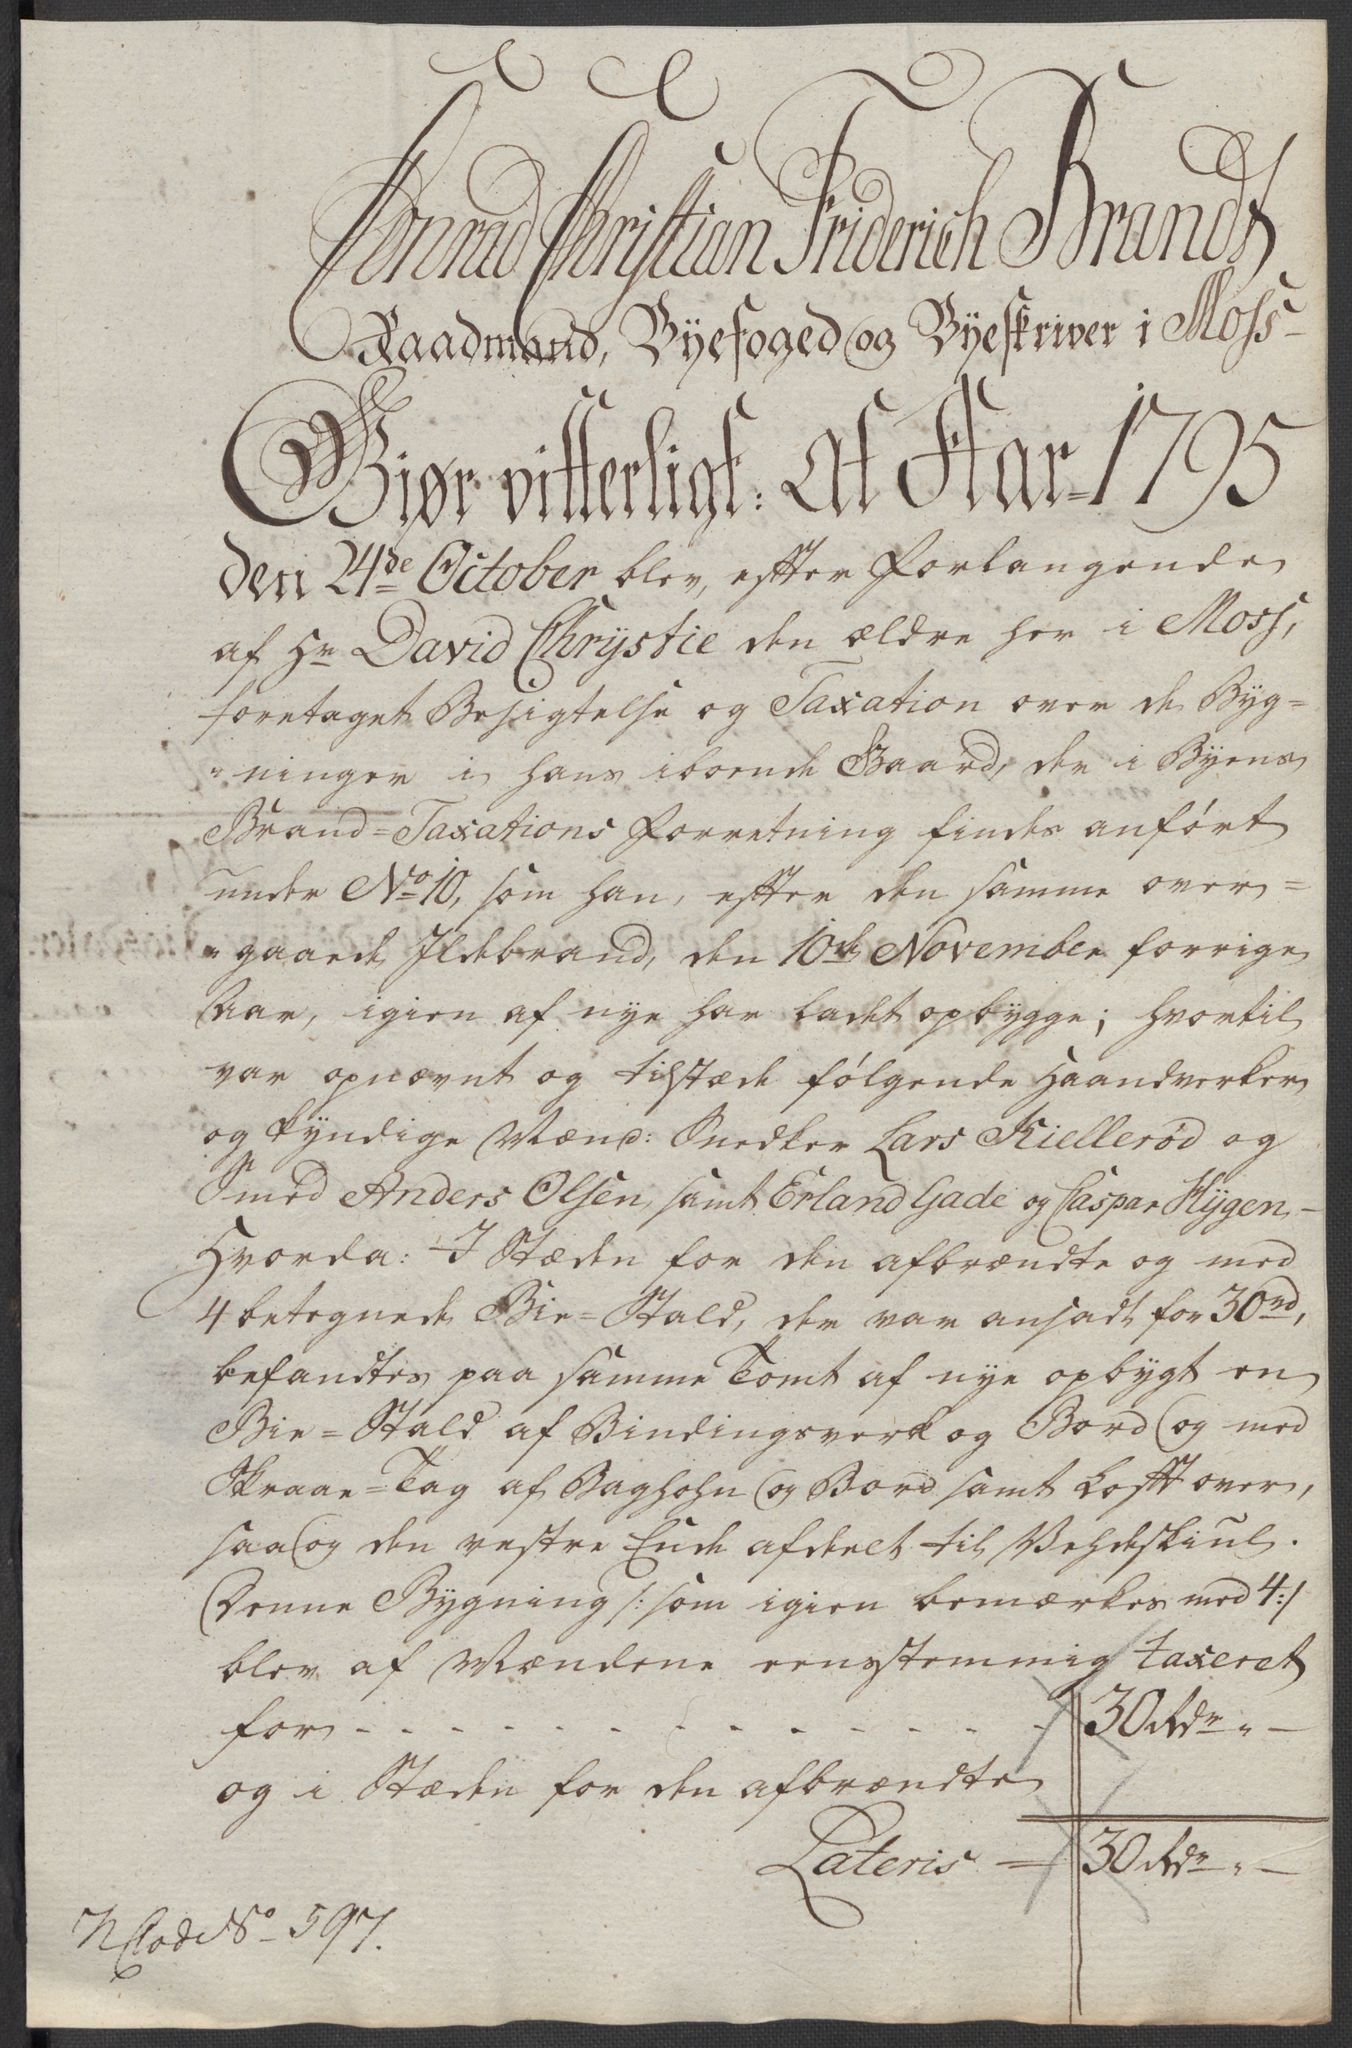 Conrad Christian Friderich Brandt
Raadmand, Byefoged og Byeskriver i Moss
Giør vitterligt: At Aar 1795
den 24de October blev, efter Forlangende
af Hr David Chrystie den ældre her i Moss,
foretaget Besigtelse og Taxation over de Byg=
"ninger i hans iboende Gaard, der i Byens
Brand=Taxations Forretning findes anført
under No 10, som han, efter den samme over=
"gaaede Ildebrand, den 10de November forrige
Aar, igien af nye har ladet opbygge; hvortil
var opnævnt og tilstæde følgende Haandverker
og kyndige Mænd: Snedker Lars Kiellerød og
Smed Anders Olsen, samt Erland Gade og Caspar Hygen,-
Hvorda: I Stæden for den afbrændte og med
4 betegnede Bie=Stald, der var ansadt for 30rd,
befandtes paa samme Tomt af nye opbygt en
Bie=Stald af Bindingsverk og Bord og med
Skraae=Tag af Baghohn og Bord samt Lofft over,
saa og den vestre Ende afdeelt til Vehdeskiul.
Denne Bygning /: som igien bemærkes med 4:/
blev af Mændene eenstemmig taxeret
for - - - - - - - - - - - - 30 Rdr " -
og i Stæden for den afbrændte
Lateris = 30 Rdr " -
No 597.